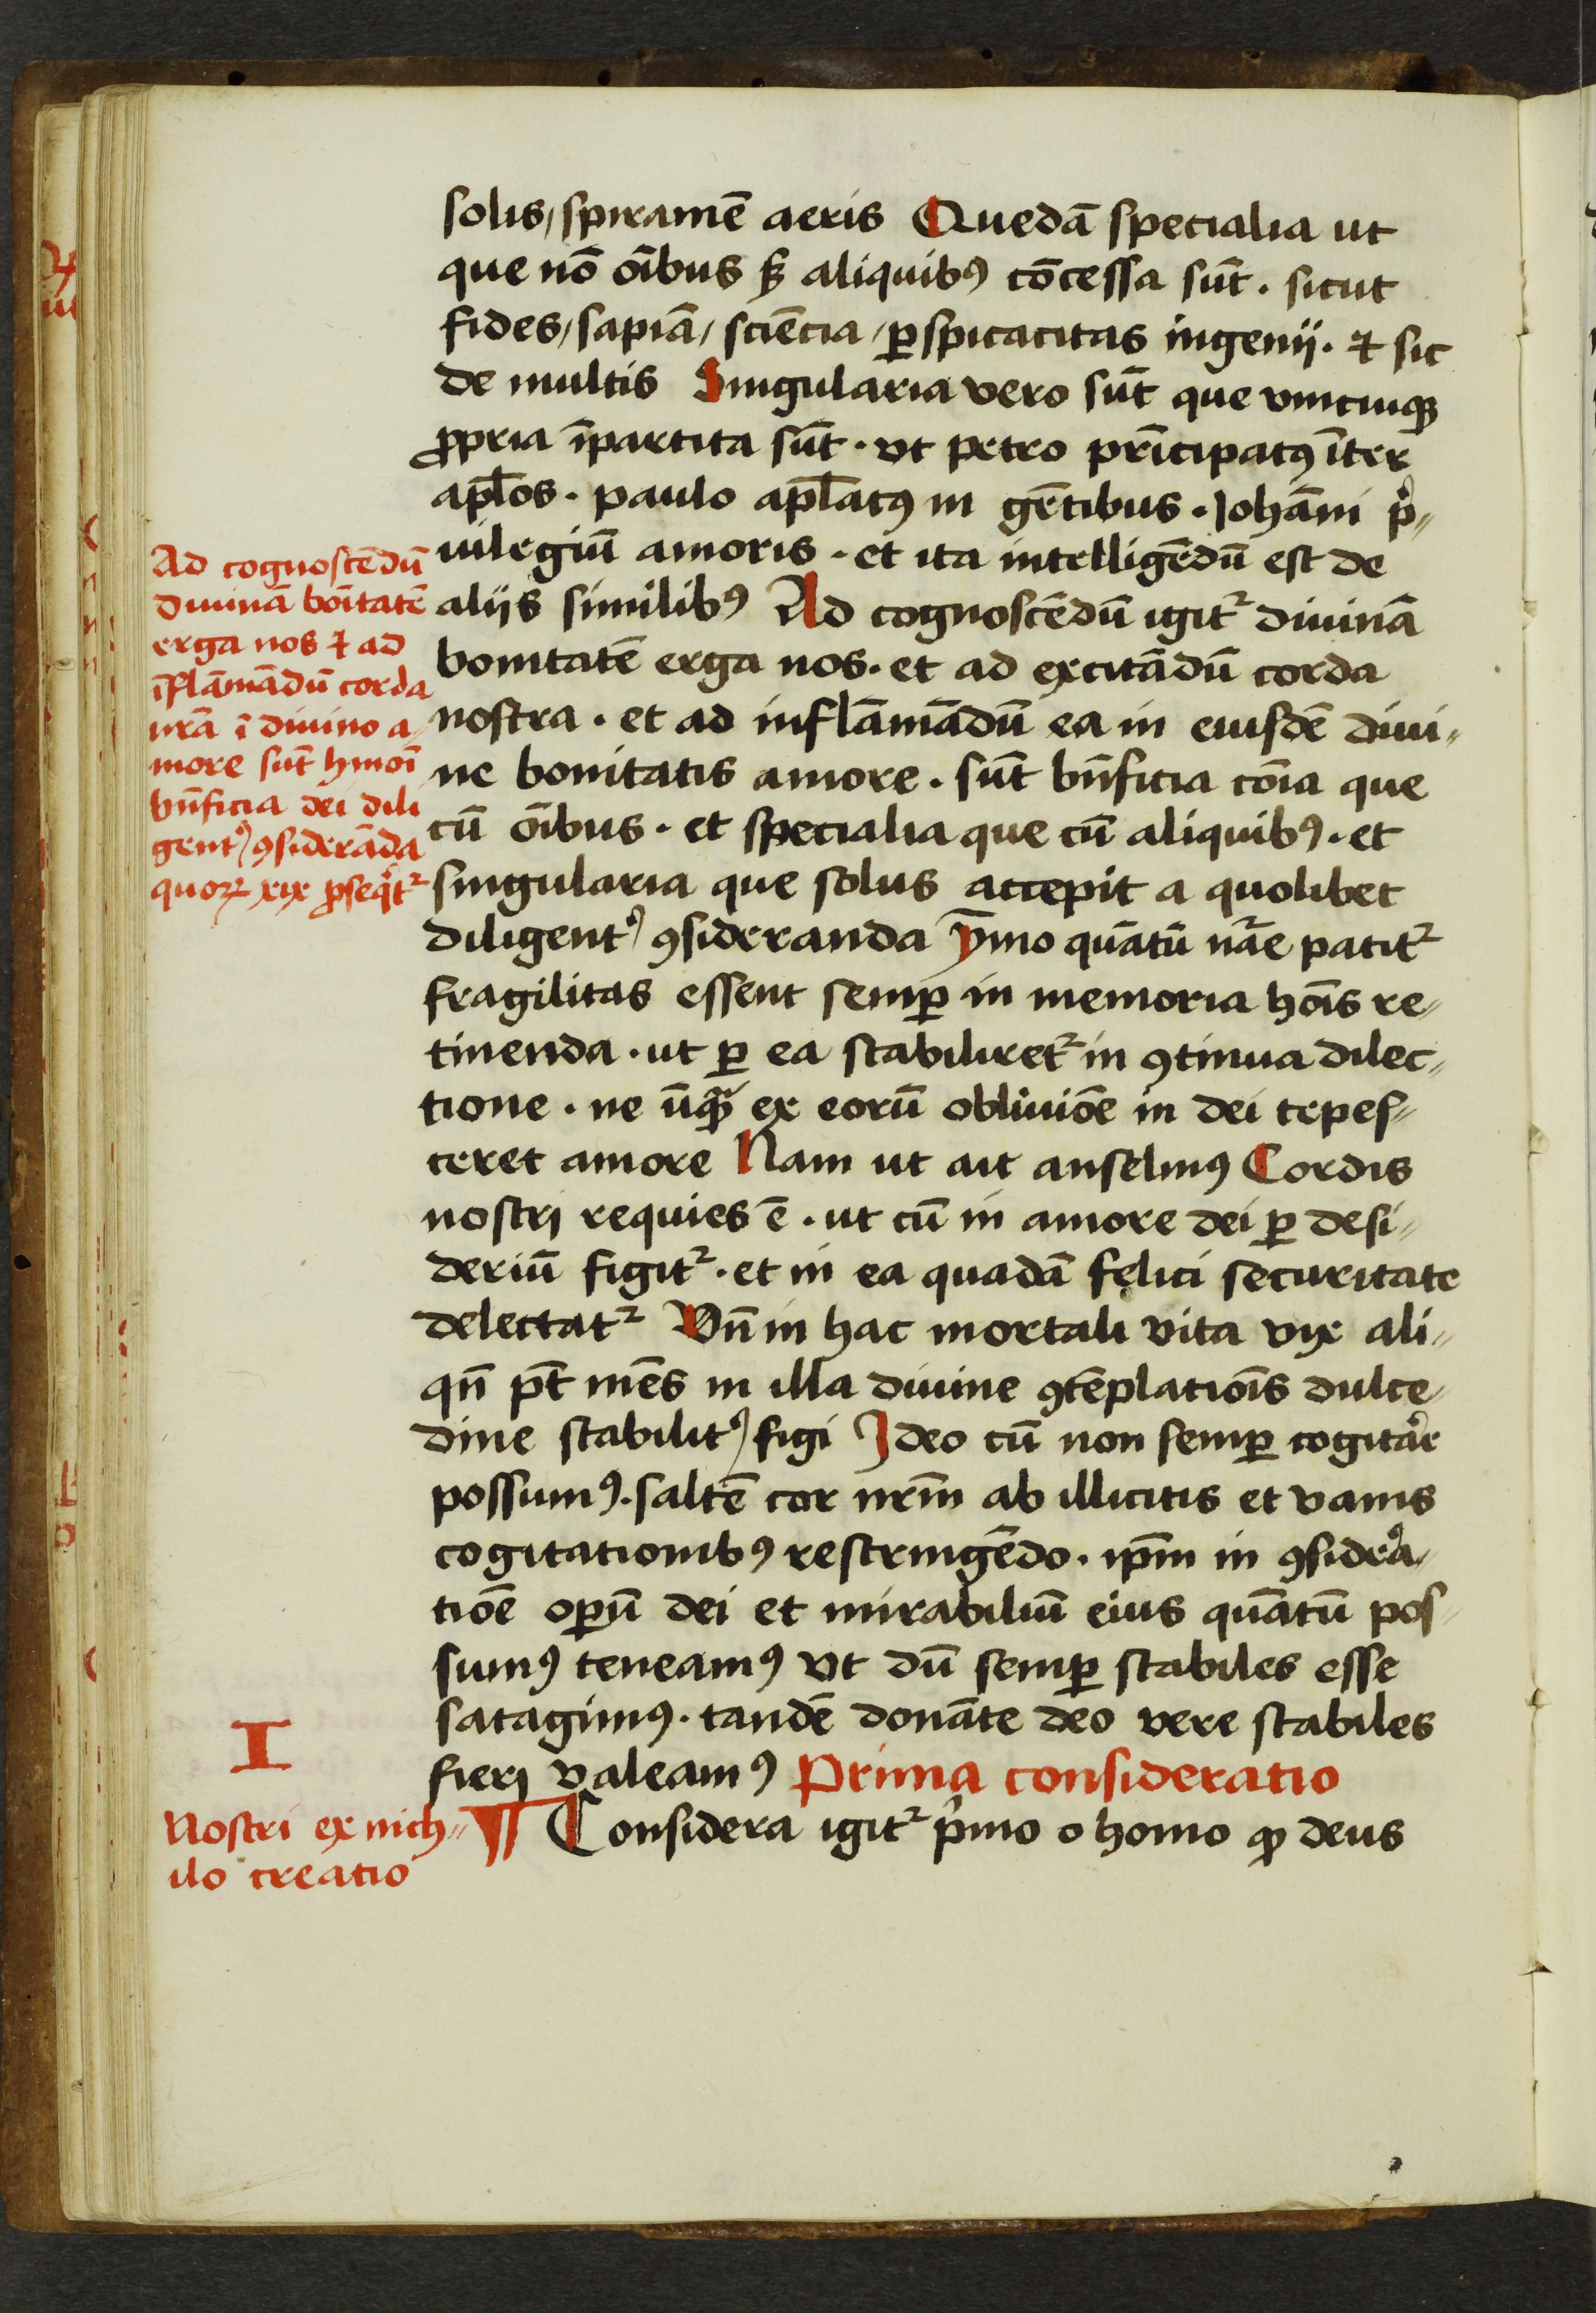 solis, spiramē aeris Quedā specialia ut
que nō oībus sꝫ aliquibꝰ cōcessa sūt. sicut
fides, sapiā, sciēcia, ꝑspicacitas ingenij. ⁊ sic
de multis Singularia vero sūt que vnicuiqꝫ
ꝓpria īpartita sūt. vt petro prīcipatꝰ īter
apl̄os. paulo apl̄atꝰ in gētibus. Johāni pͥ-
uilegiū amoris. et ita intelligēdū est de
aliis similibꝰ Ad cognoscēdū igitᷣ diuinā
bonitatē erga nos. et ad excitādū corda
nostra. et ad inflāmādū ea in eiusdē diui-
ne bonitatis amore. sūt bn̄ficia cōia que
cū oībus. et specialia que cū aliquibꝰ. et
singularia que solus accepit a quolibet
diligentꝰ ꝯsideranda ȳmo quātū nr̄ae patitᷣ
fragilitas essent semꝑ in memoria hōis re-
tinenda. ut ꝑ ea stabiliretᷣ in ꝯtinua dilec-
tione. ne ūqͣꝫ ex eorū obliuiōe in dei tepes-
ceret amore Nam ut ait anselmꝰ Cordis
nostrj requies ē. ut cū in amore dei ꝑ desi-
deriū figitᷣ. et in ea quadā felici securitate
delectatᷣ Vn̄ in hac mortali vita vix ali-
qn̄ pt̄ mēs in illa diuine ꝯtēplatiōis dulce-
dine stabilitꝰ figi Ideo cū non semꝑ cogitaͬe
possumꝰ. saltē cor nr̄m ab illicitis et vanis
cogitationibꝰ restringēdo. ip̄m in ꝯsidrͣa-
tiōe oꝑū dei et mirabiliū eius quātū pos-
sumꝰ teneamꝰ Vt dū semꝑ stabiles esse
satagimꝰ. tandē donāte deo vere stabiles
fierj valeamꝰ Prima consideratio
¶ Considera igitᷣ pͥmo o homo ꝙ deus
Ad cognoscēdū
diuinā boītatē
erga nos ⁊ ad
īflāmādū corda
nr̄a ī diuino a-
more sūt hmōi
bn̄ficia dei dili
gentꝰ ꝯsiderāda
quoꝝ xix ꝓseqͥtᷣ
I
Nostri ex nich-
ilo creatio